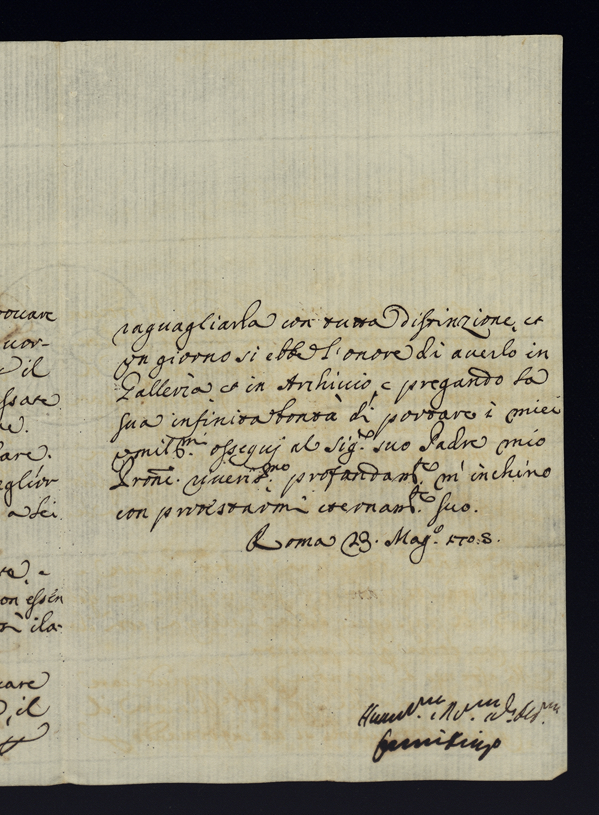 ouare
uor-
il
ssate
e.
are.
glior
a Lei
te. e
on essen
ti ila-
care
il
raguagliarla con tutta distinzione, et
un giorno si ebbe l'onore di auerlo in
Galleria et in Archiuio, e pregando la
sua infinita bontà di portare i miei
umil.mi ossequj al Sig.r suo Padre mio
Prone. riueri.mo profondam.te m'inchino
con protestarmi eternam.te suo.
Roma 23. Mag.o 1708.